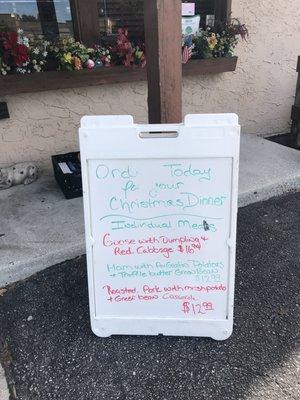 Ord Today
for your
Christmas Dinner
Individual Meals
Goose with Dumpling &
Red Cabbage $16.99
Ham with Au Gratin Potatoes
+ Truffle butter Green Bean
$12.99
Roasted Pork with mash potato
+ Green bean Casserole
$12.99